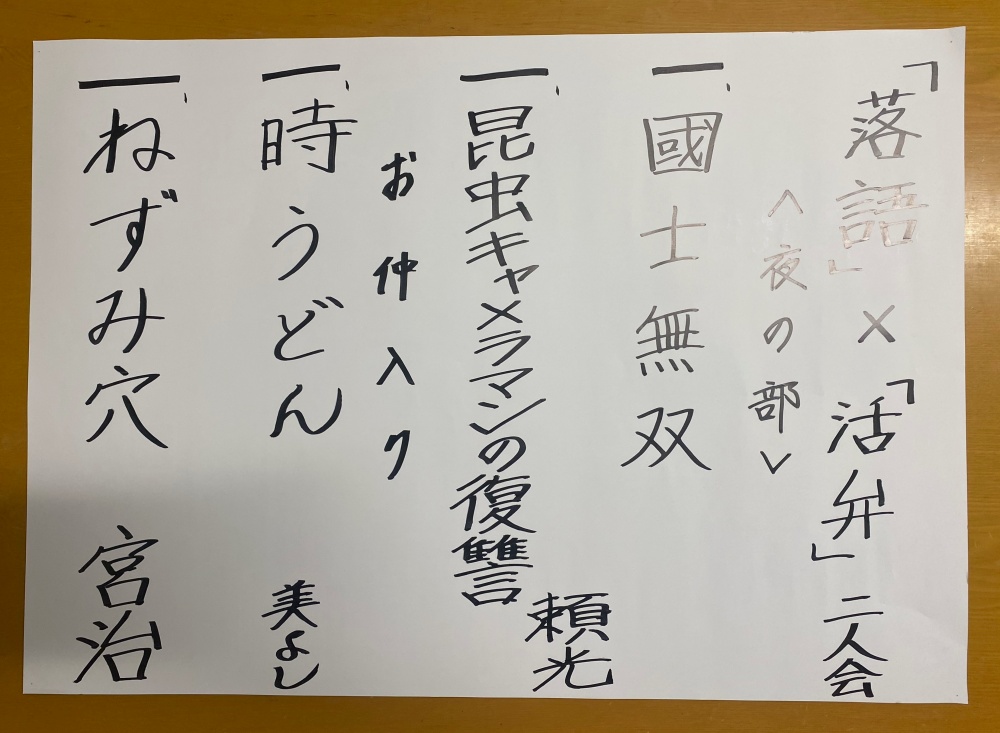 「落語」×「活弁」二人会
＜夜の部＞
一、國士無双
一、昆虫キャメラマンの復讐 頼光
お仲入り
一、時うどん 美よし
一、ねずみ穴 宮治